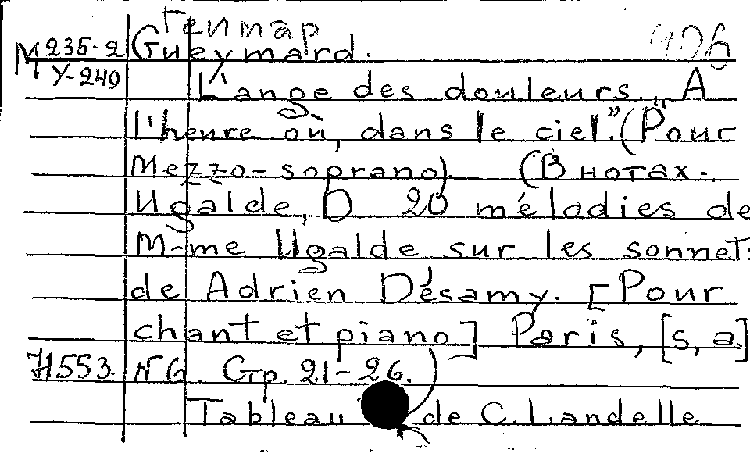 Геймар
М 235-2 Gueymard. 406
У-249
L'ange des douleurs „A
l'heure où, dans le ciel.” (Pour
Mezzo-soprano). (В нотах.
Ugalde, D 20 mélodies de
M-me Ugalde sur les sonnets
de Adrien Désamy. [Pour
chant et piano] Paris, [s, a]
71553 N 6. Cтp. 21-26.)
Tableau de C. Landelle